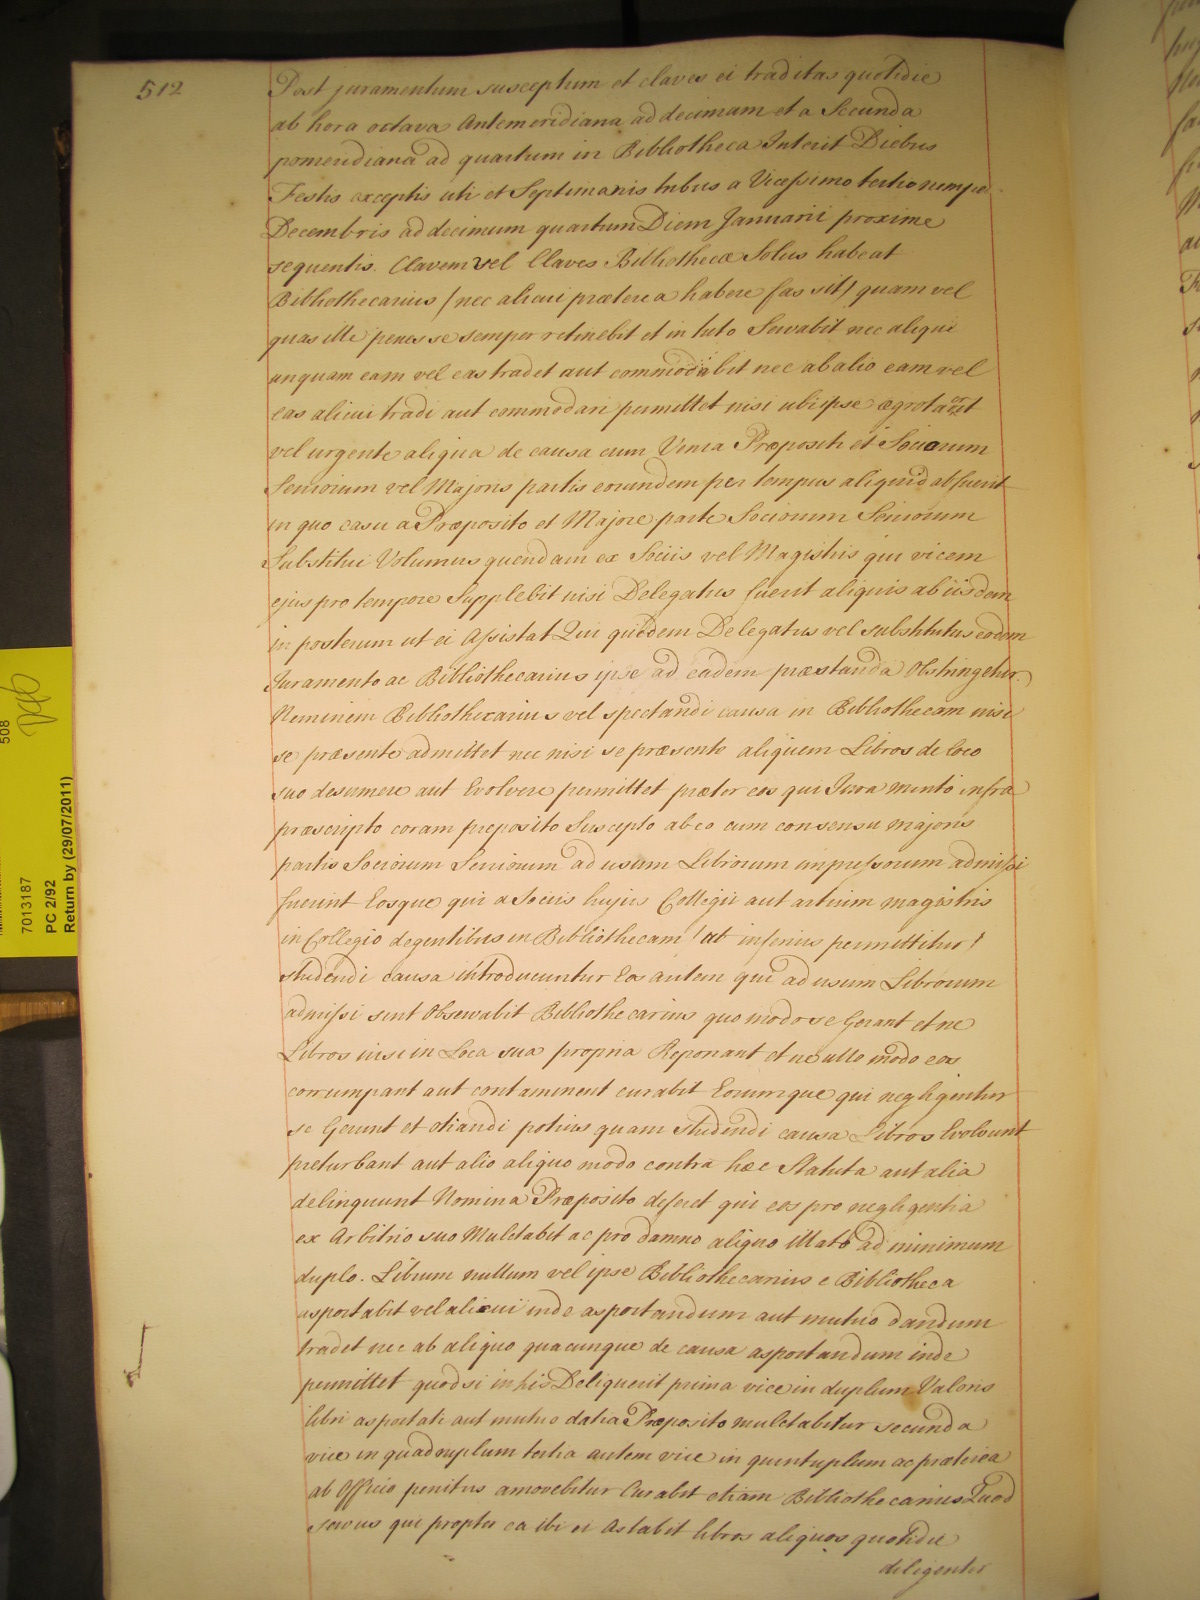 512
Post juramentum susceptum et claves ei traditas quotidie
ab hora octava Antemeridiana ad decimam et a Secunda
pomeridiana ad quartum in Bibliotheca Interit Diebus
Festis exceptis uti et Septimanis tribus a Vicessimo tertio nempe
Decembris ad decimum quartum Diem Januarii proxime
sequentis. Clavem vel Claves Bibliothecæ Solus habeat
Bibliothecarius (nec alicui præterea habere fas sit) quam vel
quas ille penes se semper retinebit et in tuto Servabit nec aliqui
unquam eam vel eas tradet aut commodabit nec ab alio eam vel
eas alicui tradi aut commodari permittet nisi ubi ipse ægrotaret
vel urgente aliqua de causa cum Venia Præpositi et Sociorum
Seniorum vel Majoris partis eorundem per tempus aliquid abfuerit
in quo casu a Præposito et Majore parte Sociorum Seniorum
Substitui Volumus quendam ex Sociis vel Magistris qui vicem
ejus pro tempore Supplebit nisi Delegatus fuerit aliquis ab iisdem
in posterum ut ei Assistat Qui quidem Delegatus vel substitutus eodem
Juramento ac Bibliothecarius ipse ad eadem præstanda Obstringetur
Neminem Bibliothecarius vel spectandi causa in Bibliothecam nisi
se præsente admittet nec nisi se præsente aliquem Libros de loco
suo desumere aut Evolvere permittet præter eos qui Juramento infra
præscripto coram preposito Suscepto ab eo cum consensu majoris
partis Sociorum Seniorum ad usum Librorum impressorum admissi
fuerint Eosque qui a Sociis hujus Collegii aut artium magistris
in Collegio degentibus in Bibliothecam (ut inferius permittitur)
studendi causa introducuntur Eos autem qui ad usum Librorum
admissi sint Observabit Bibliothecarius quo modo se Gerant et ne
Libros nisi in Loca sua propria Reponant et ne ullo modo eos
corrumpant aut contaminent curabit Eorumque qui negligenter
se Gerunt et otiandi potius quam studendi causa Libros Evolvunt
preturbant aut alio aliquo modo contra hæc Statuta aut alia
delinquunt Nomina Præposito deferet qui eos pro negligentia
ex Arbitrio suo Mulctabit ac pro damno aliquo illato ad minimum
duplo. Librum nullum vel ipse Bibliothecarius e Bibliotheca
asportabit vel alicui inde asportandum aut mutuo dandum
tradet nec ab aliquo quacunque de causa asportandum inde
permittet quod si in his Deliquerit prima vice in duplum Valoris
libri asportati aut mutuo dati a Præposito mulctabitur secunda
vice in quadruplum tertia autem vice in quintuplum ac præterea
ab Officio penitus amovebitur Curabit etiam Bibliothecarius Quod
servus qui propter ea ibi ei Astabit libros aliquos quotidie
diligenter
508
7013187
PC 2/92
Return by (29/07/2011)